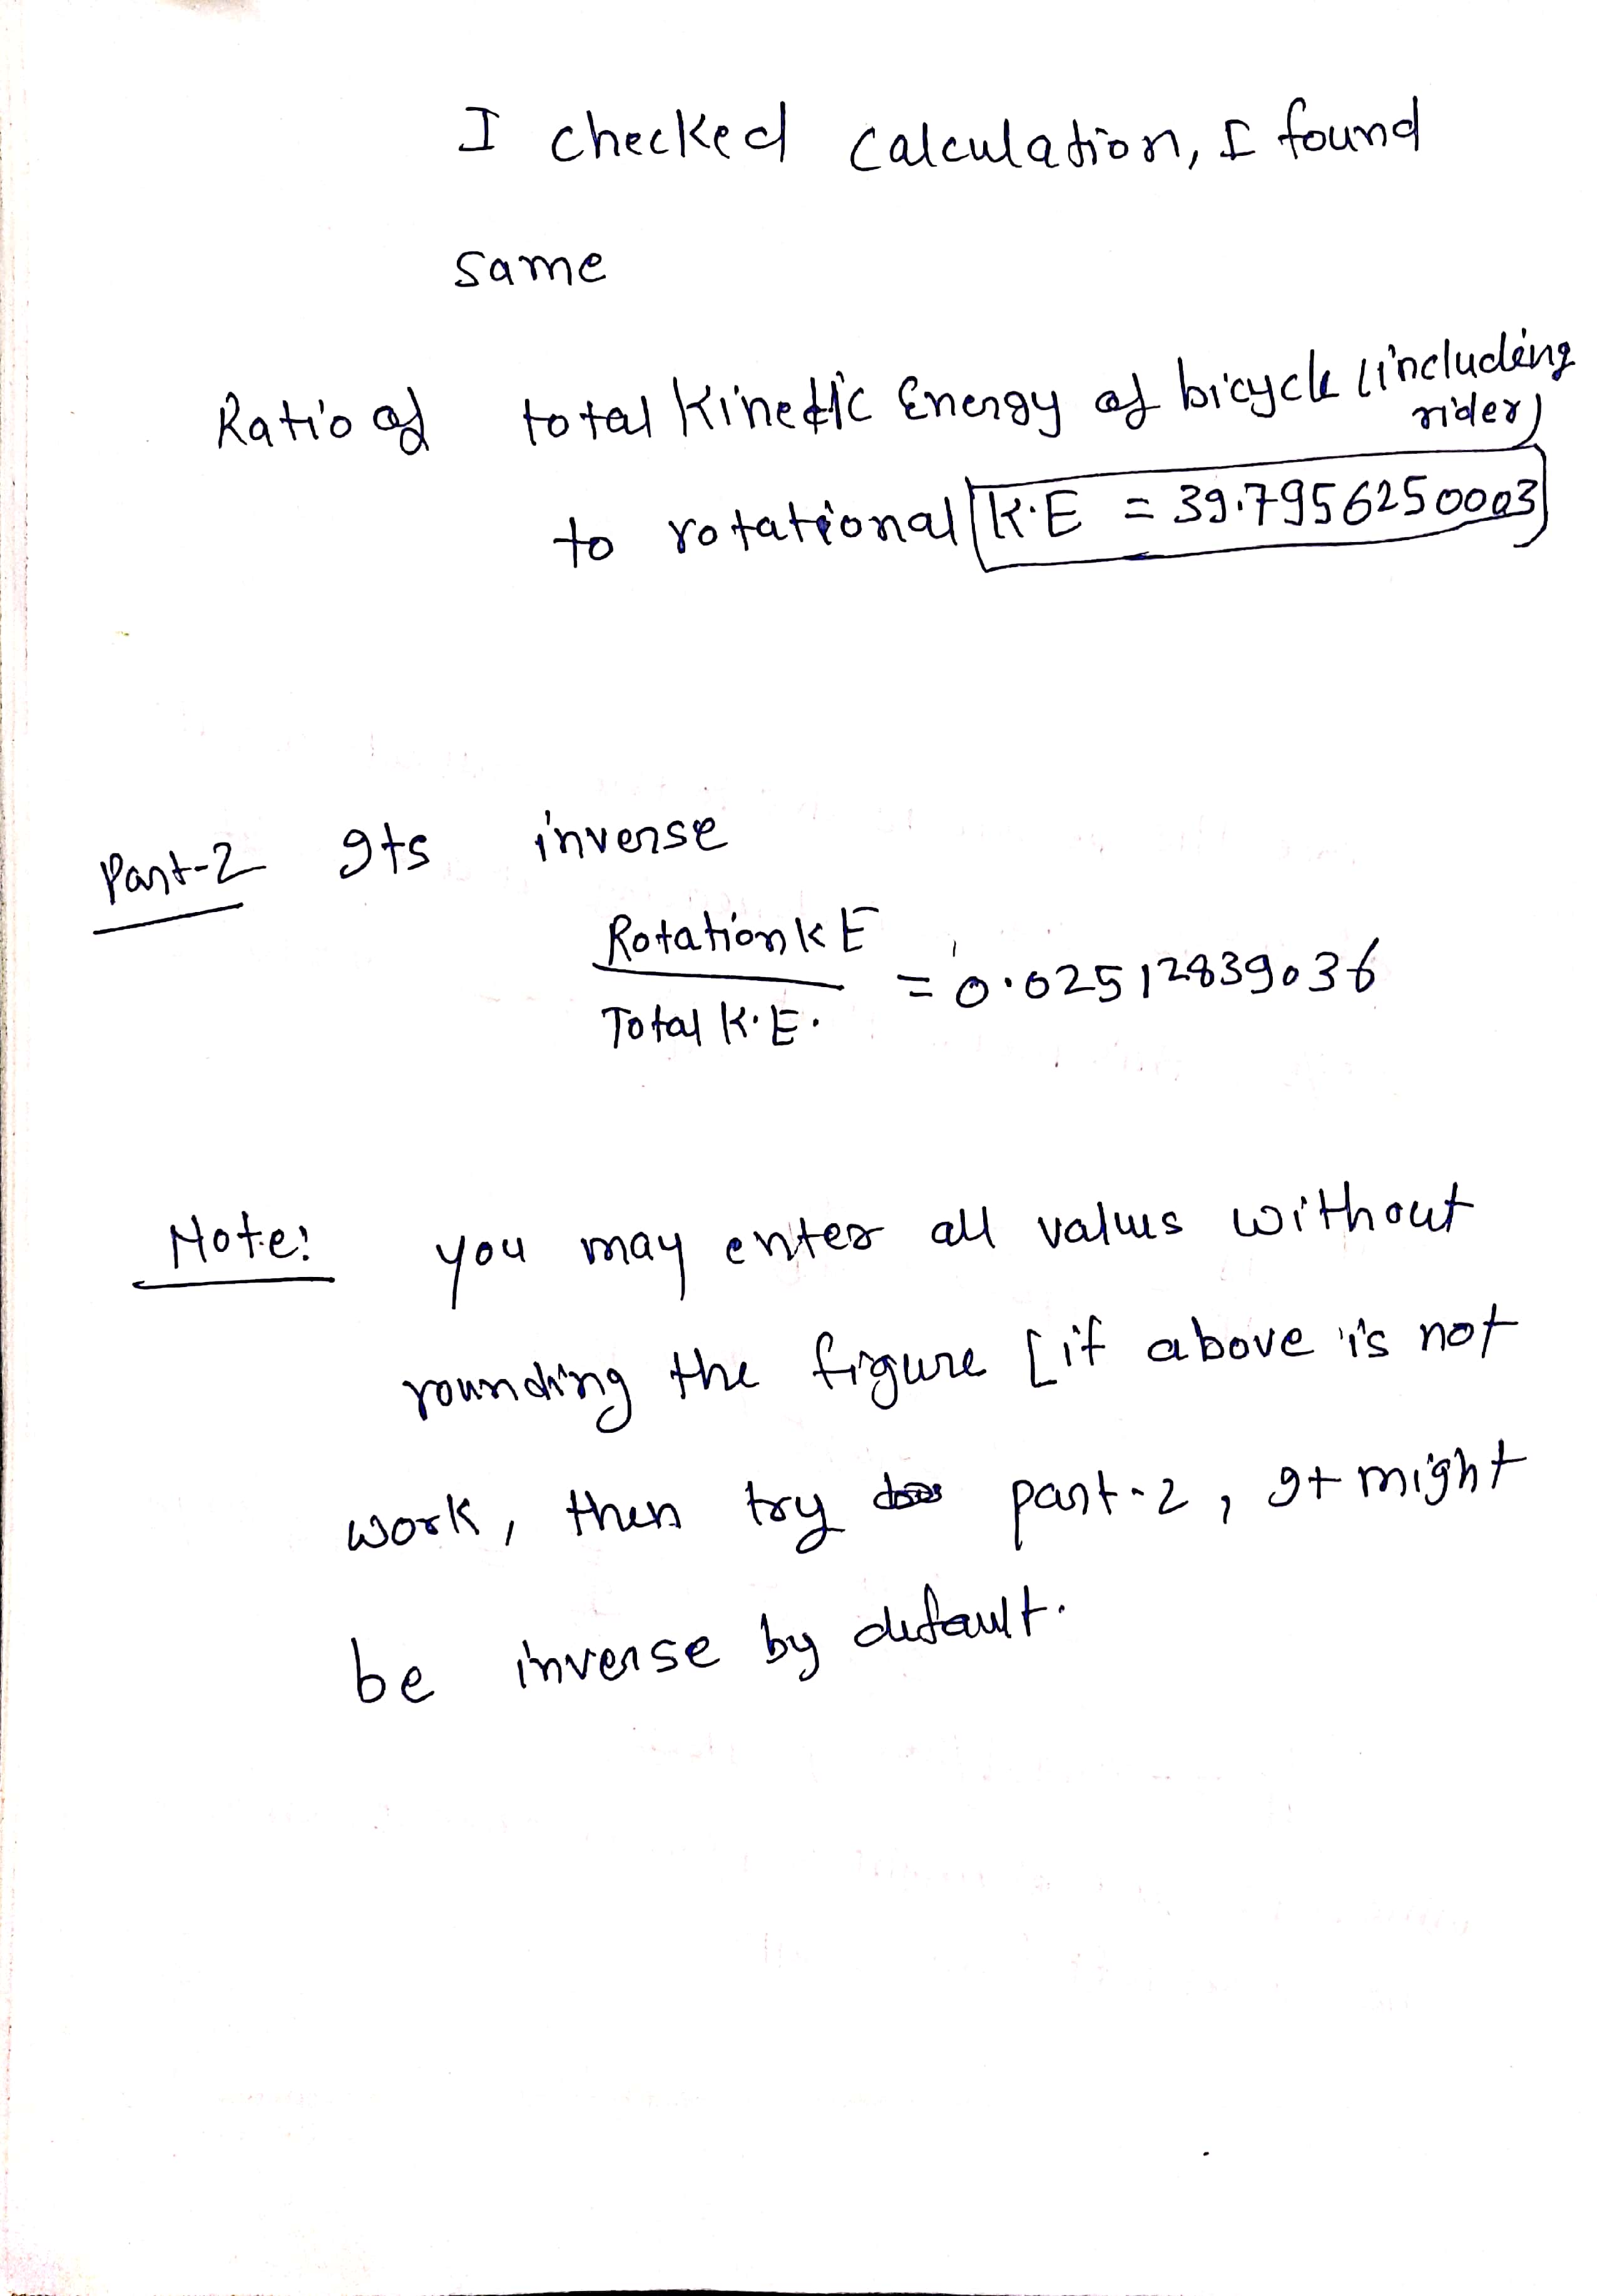 I checked calculation, I found
same
Ratio of total Kinetic Energy of bicycle (including
rider)
to rotational K.E = 39.7956250003
Part-2 Its inverse
Rotation K E
= 0.02512839036
Total K.E.
Note: you may enter all values without
rounding the figure [if above is not
work, then try part-2, It might
be inverse by default.